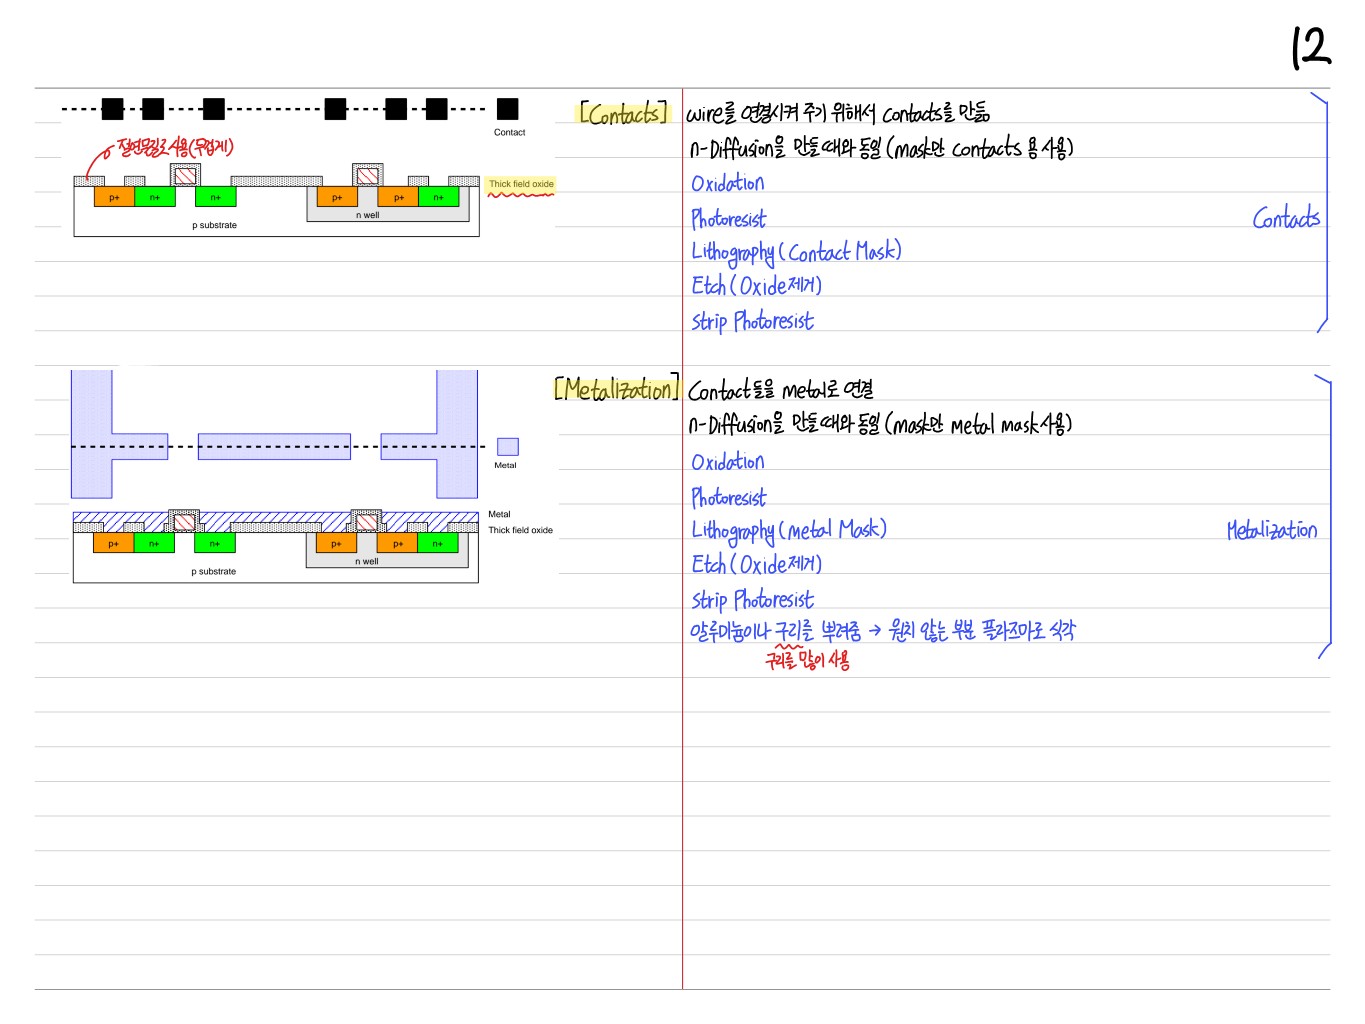 12
Contact
절연물질로 사용(두껍게)
Thick field oxide
p+ n+ n+ p+ p+ n+
n well
p substrate
[Contacts] wire를 연결시켜 주기 위해서 Contacts를 만듦
n-Diffusion을 만들때와 동일 (mask만 contacts 용 사용)
Oxidation
Photoresist
Contacts
Lithography (Contact Mask)
Etch (Oxide제거)
Strip Photoresist
Metal
Metal
Thick field oxide
p+ n+ n+ p+ p+ n+
n well
p substrate
[Metalization] Contact들을 metal로 연결
n-Diffusion을 만들때와 동일 (mask만 metal mask사용)
Oxidation
Photoresist
Lithography (metal Mask)
Metalization
Etch (Oxide제거)
Strip Photoresist
알루미늄이나 구리를 뿌려줌 → 원치 않는 부분 플라즈마로 식각
구리를 많이 사용